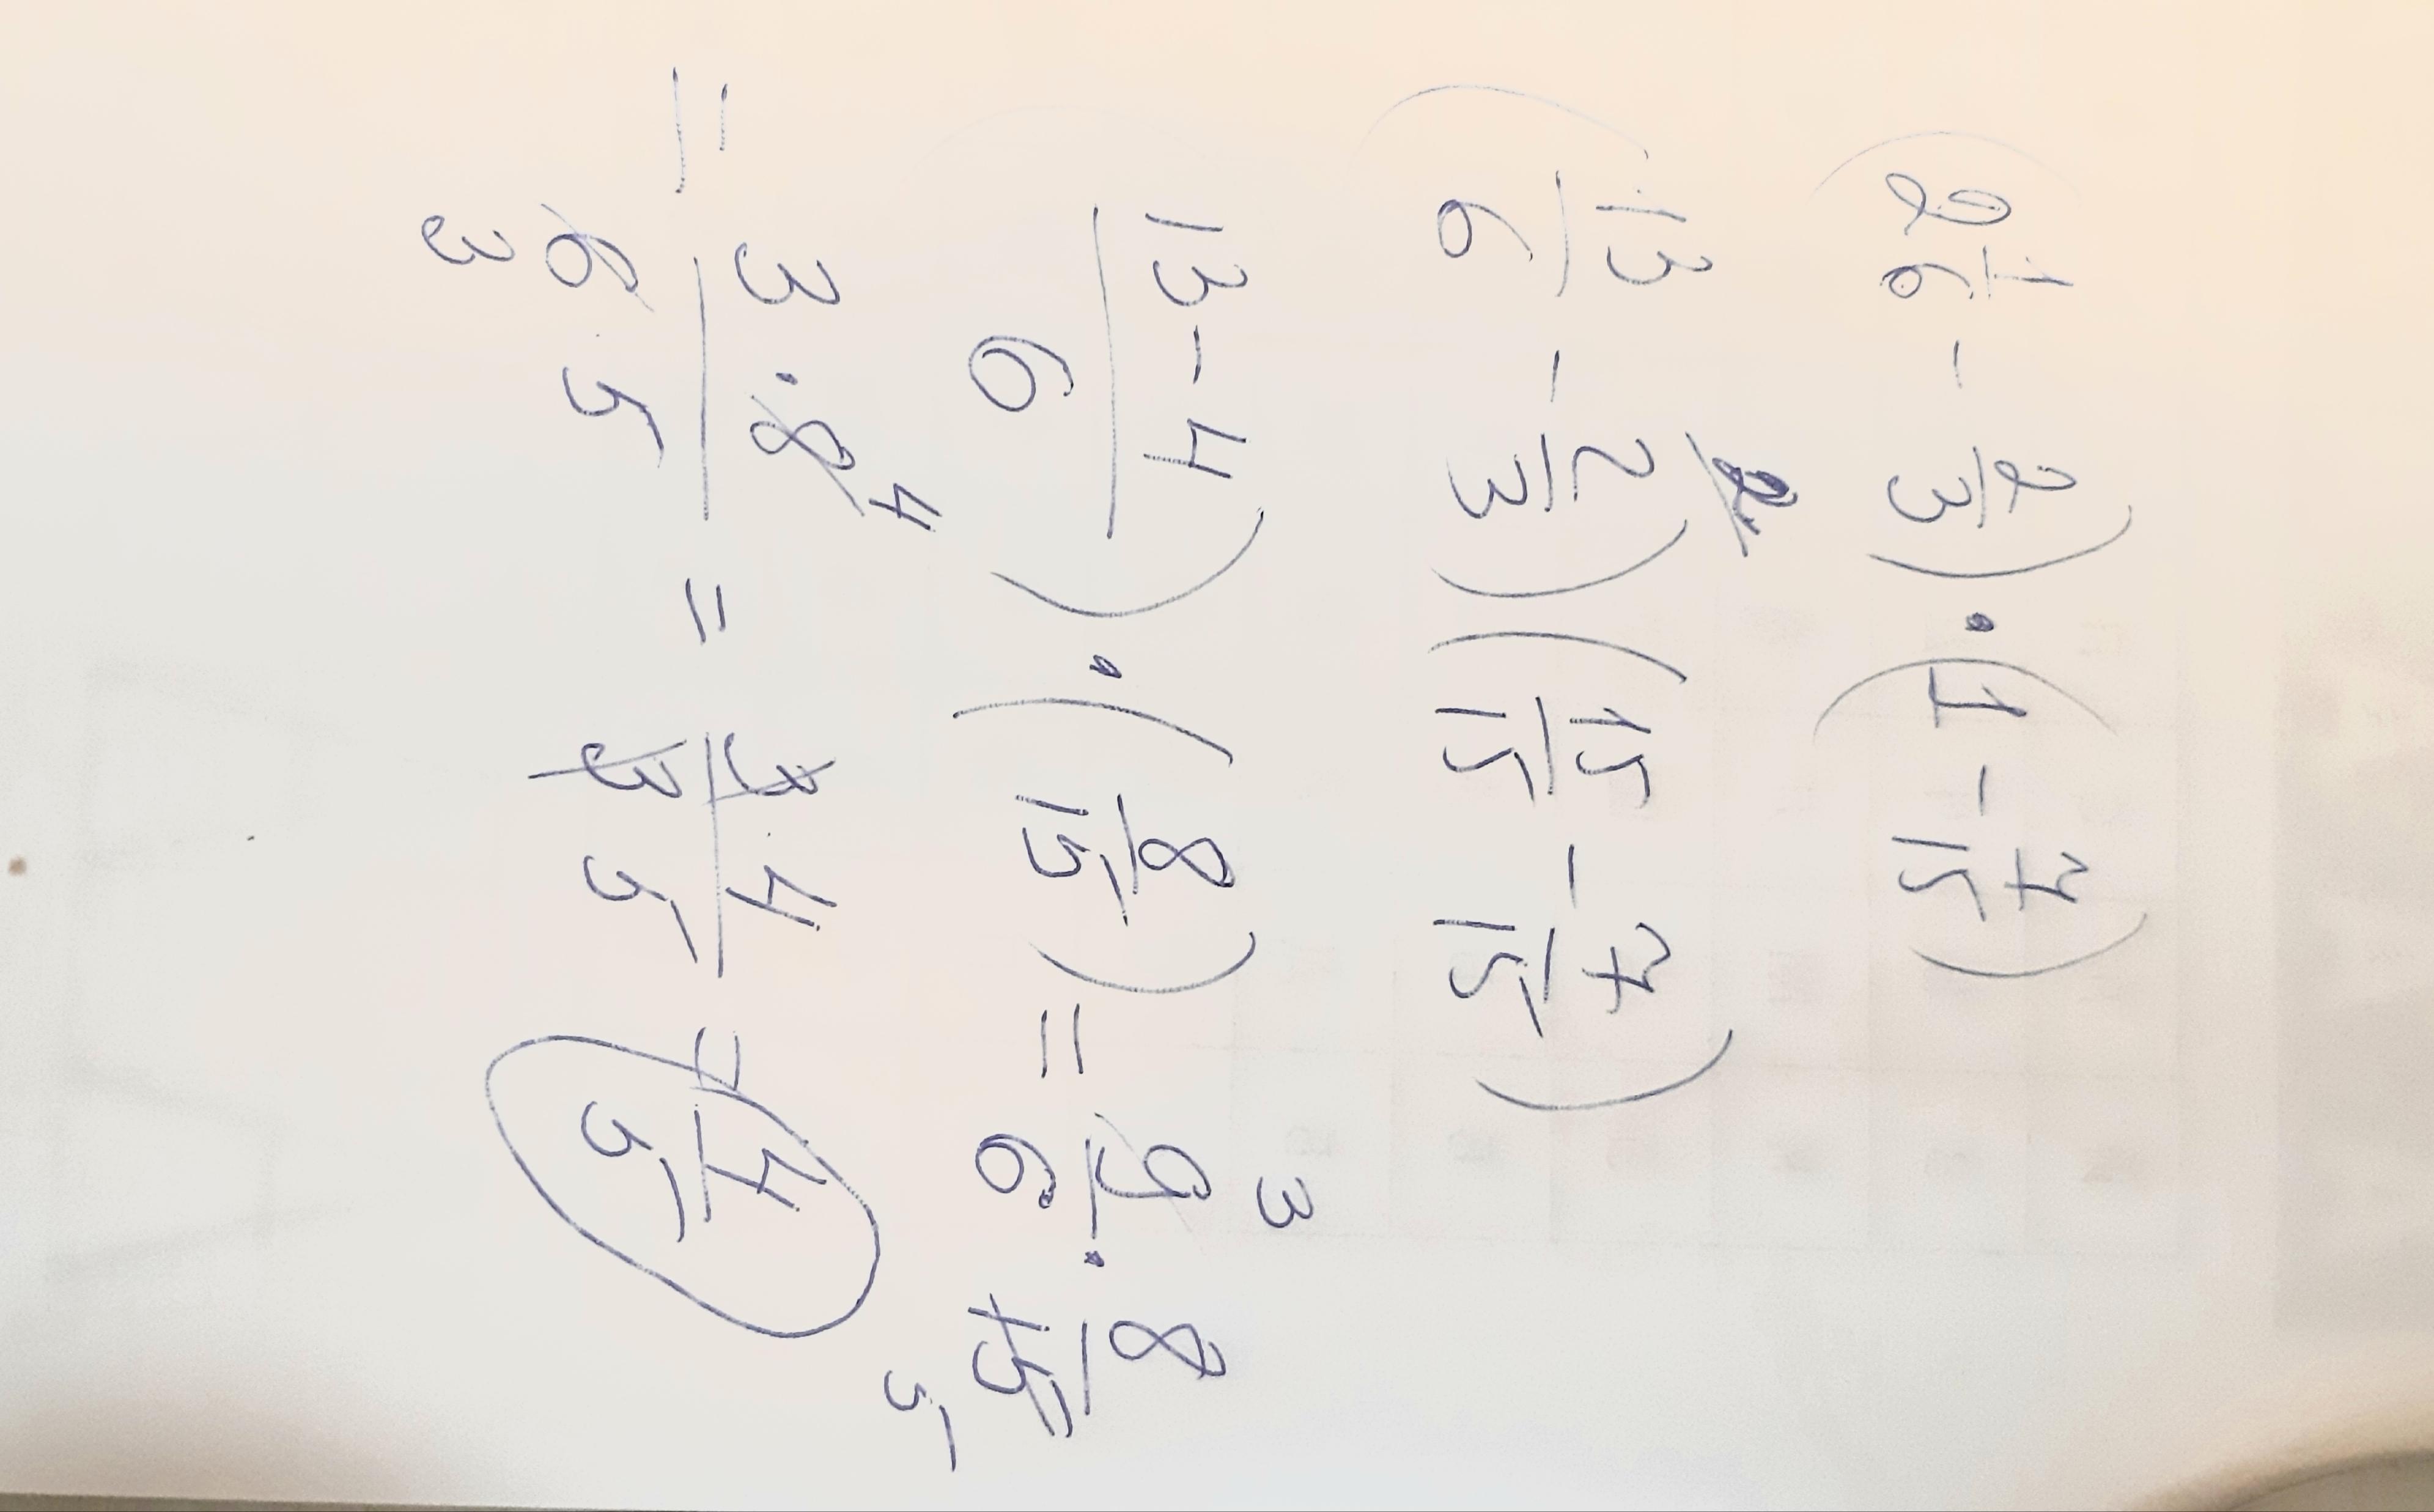 (2 1/6 - 2/3) · (1 - 7/15)
(13/6 - 2/3) (15/15 - 7/15)
(13-4)/6) · (8/15) = 9/6 · 8/15 3 5
= 3·8/6 5 4 3 = 3 4/3 5 = 4/5